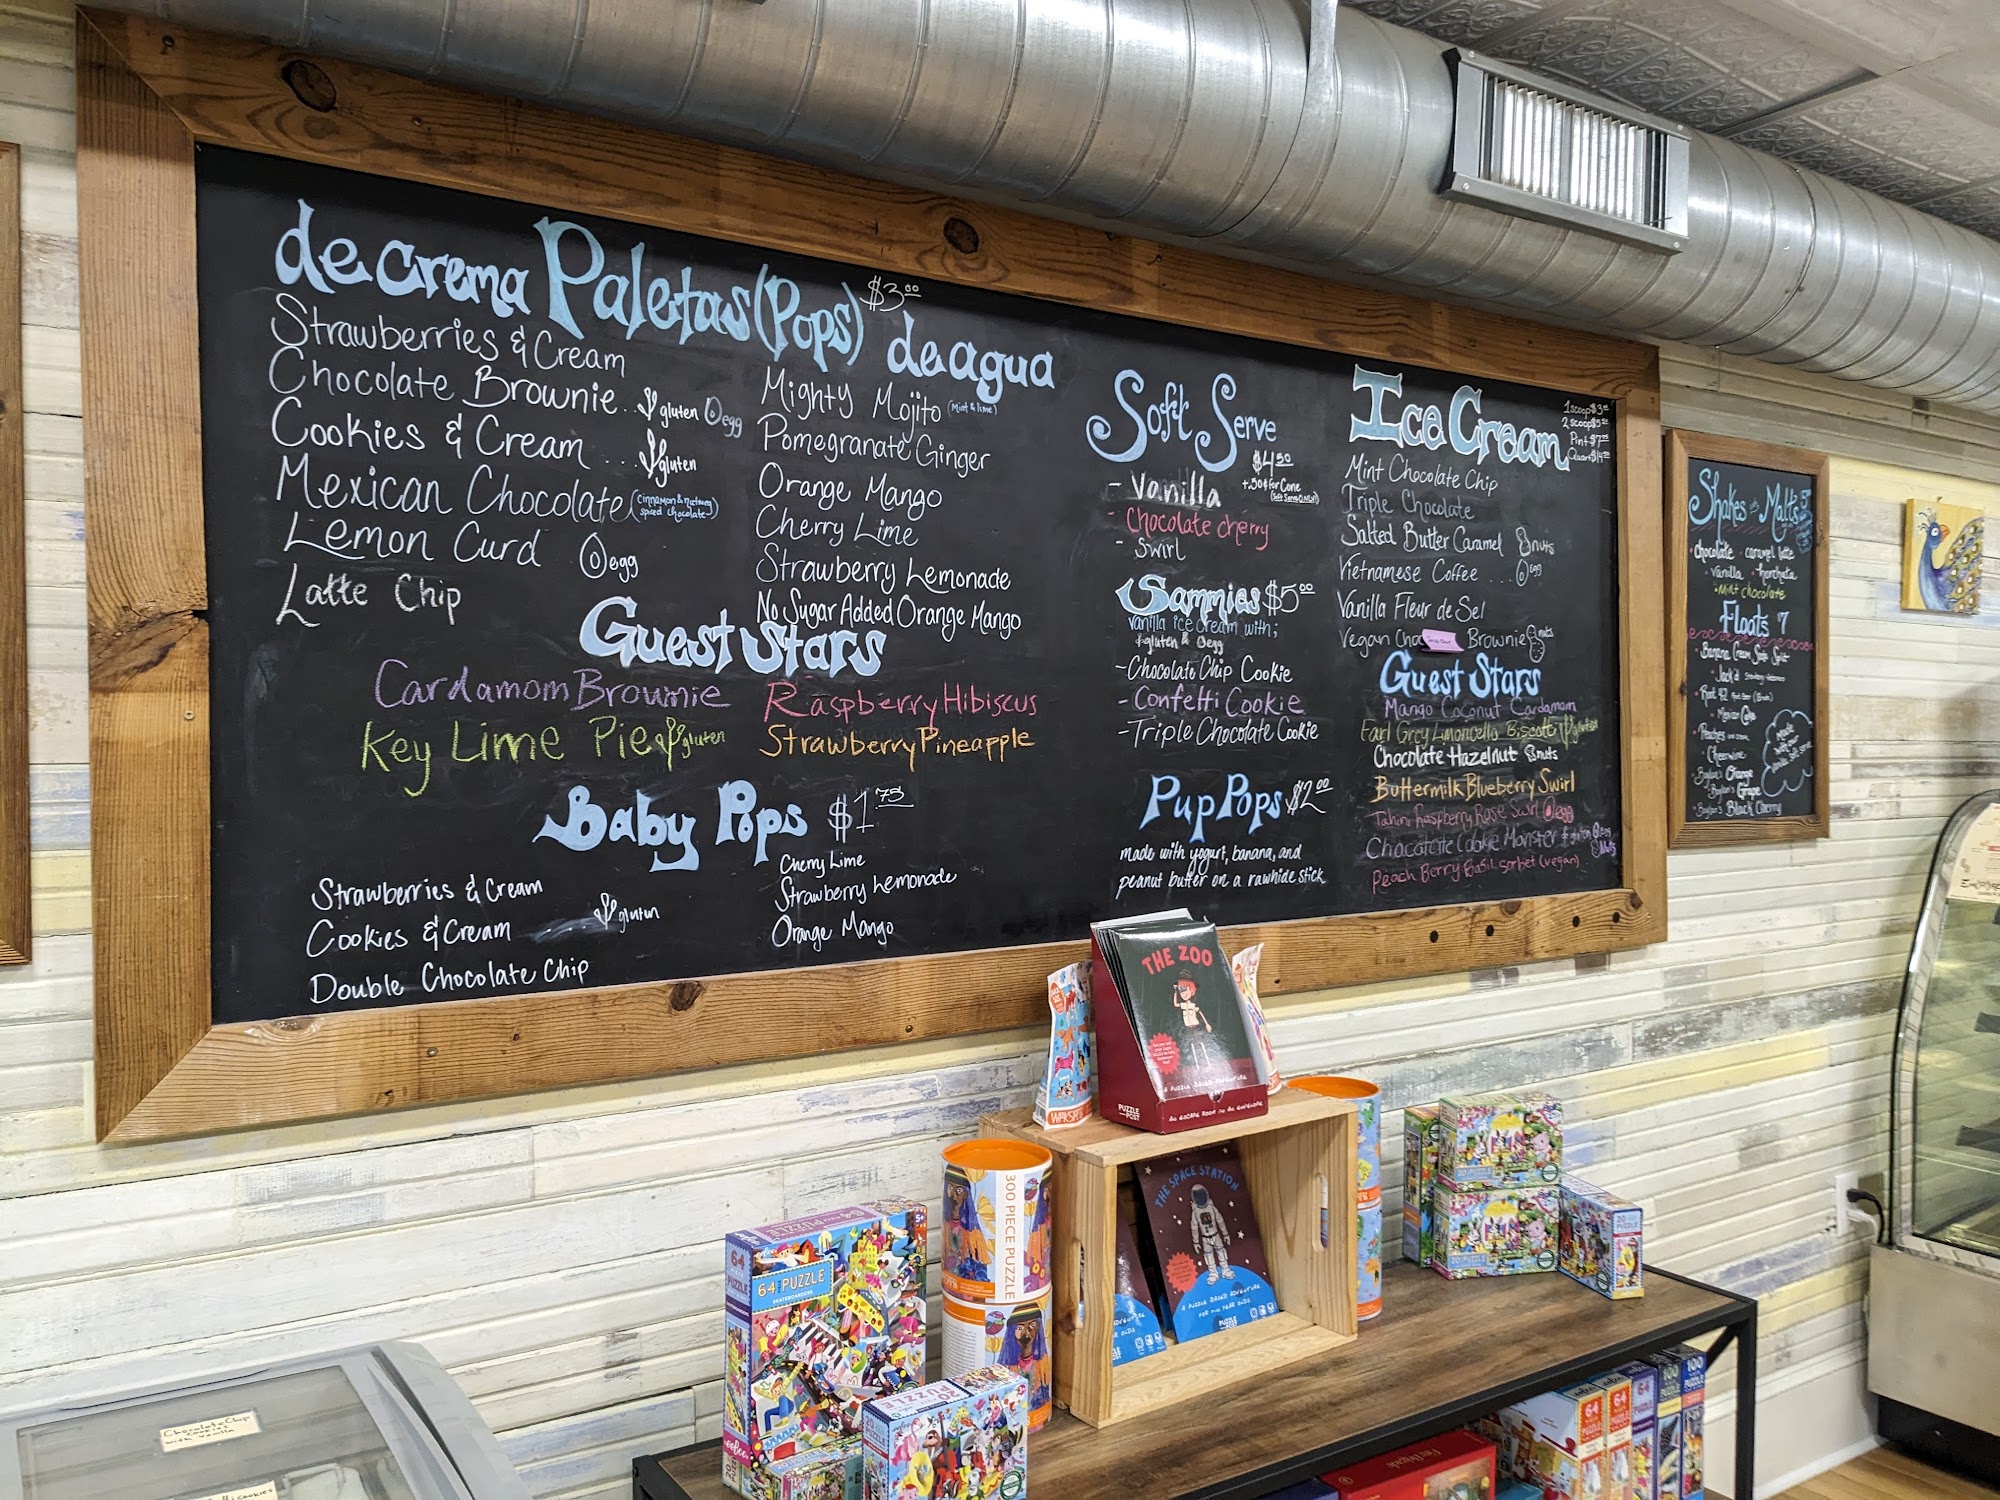 de crema Paletas (Pops) $3.00 de agua
Strawberries & Cream
Chocolate Brownie... gluten egg
Cookies & Cream .... gluten
Mexican Chocolate (cinnamon & nutmeg
spiced chocolate)
Lemon Curd egg
Latte Chip
Mighty Mojito (mint & lime)
Pomegranate Ginger
Orange Mango
Cherry Lime
Strawberry Lemonade
No Sugar Added Orange Mango
Guest Stars
Cardamom Brownie
Key Lime Pie gluten
Raspberry Hibiscus
Strawberry Pineapple
Baby Pops $1.75
Strawberries & Cream
Cookies & Cream gluten
Double Chocolate Chip
Cherry Lime
Strawberry Lemonade
Orange Mango
Soft Serve
$4.50
+.50¢ for Cone
- Vanilla
- Chocolate cherry
- Swirl
Sammies $5.00
vanilla ice cream with;
gluten & egg
- Chocolate Chip Cookie
- Confetti Cookie
- Triple Chocolate Cookie
Pup Pops $2.00
made with yogurt, banana, and
peanut butter on a rawhide stick
Ice Cream
1 scoop
2 scoop
Pint
Quart
Mint Chocolate Chip
Triple Chocolate
Salted Butter Caramel nuts
Vietnamese Coffee .... egg
Vanilla Fleur de Sel
Vegan Choc Brownie nuts
Guest Stars
Mango Coconut Cardamom
Earl Grey Limoncello Biscotti gluten
Chocolate Hazelnut nuts
Buttermilk Blueberry Swirl
Tahini Raspberry Rose Swirl egg
Chocolate Cookie Monster gluten egg
Nuts
Peach Berry Basil sorbet (vegan)
Shakes Malts
chocolate • caramel latte
vanilla • horchata
• mint chocolate
Floats $7
Banana Cream Soda Split
Root 42
• Mexican Coke
Peaches
Cheerwine
Orange
Grape
Black Cherry
THE ZOO
A PUZZLE BASED ADVENTURE
PUZZLE
POST
AN ESCAPE ROOM IN AN ENVELOPE
THE SPACE STATION
A PUZZLE BASED ADVENTURE
PUZZLE
POST
300 PIECE PUZZLE
64 PUZZLE
64 PUZZLE
SKATEBOARDERS
eeBoo
20 PUZZLE
20 PUZZLE
64
64
100
100
PUZZLE
Chocolate Chip
cookies
with vanilla